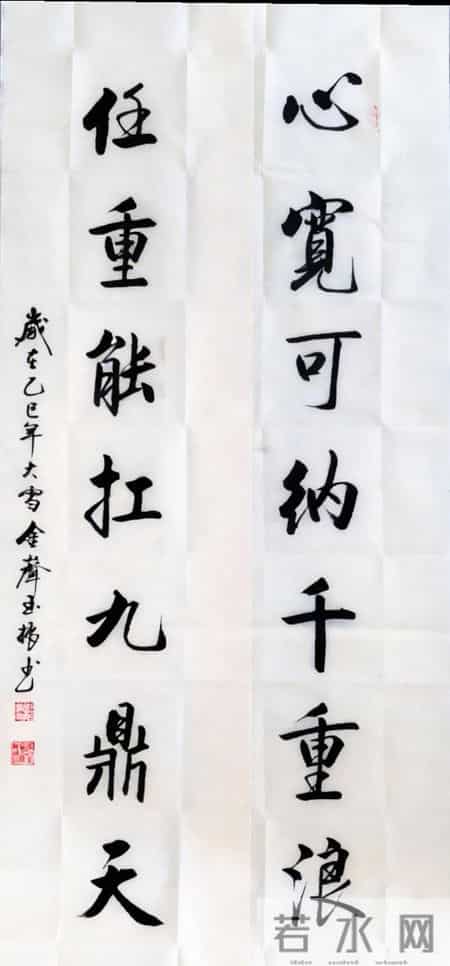 心寬可纳千重浪
任重能扛九鼎天
歲在乙巳年大雪金聲玉振书
若水网